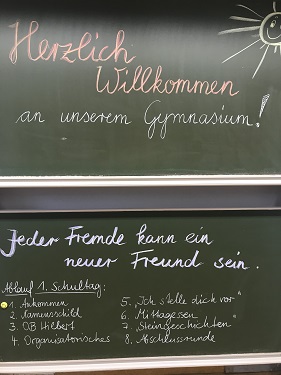 Herzlich
Willkommen
an unserem Gymnasium!
Jeder Fremde kann ein
neuer Freund sein.
Ablauf 1. Schultag:
1. Ankommen
2. Namensschild
3. OB Hilbert
4. Organisatorisches
5. "Ich stelle dich vor"
6. Mittagessen
7. "Steingeschichten"
8. Abschlussrunde